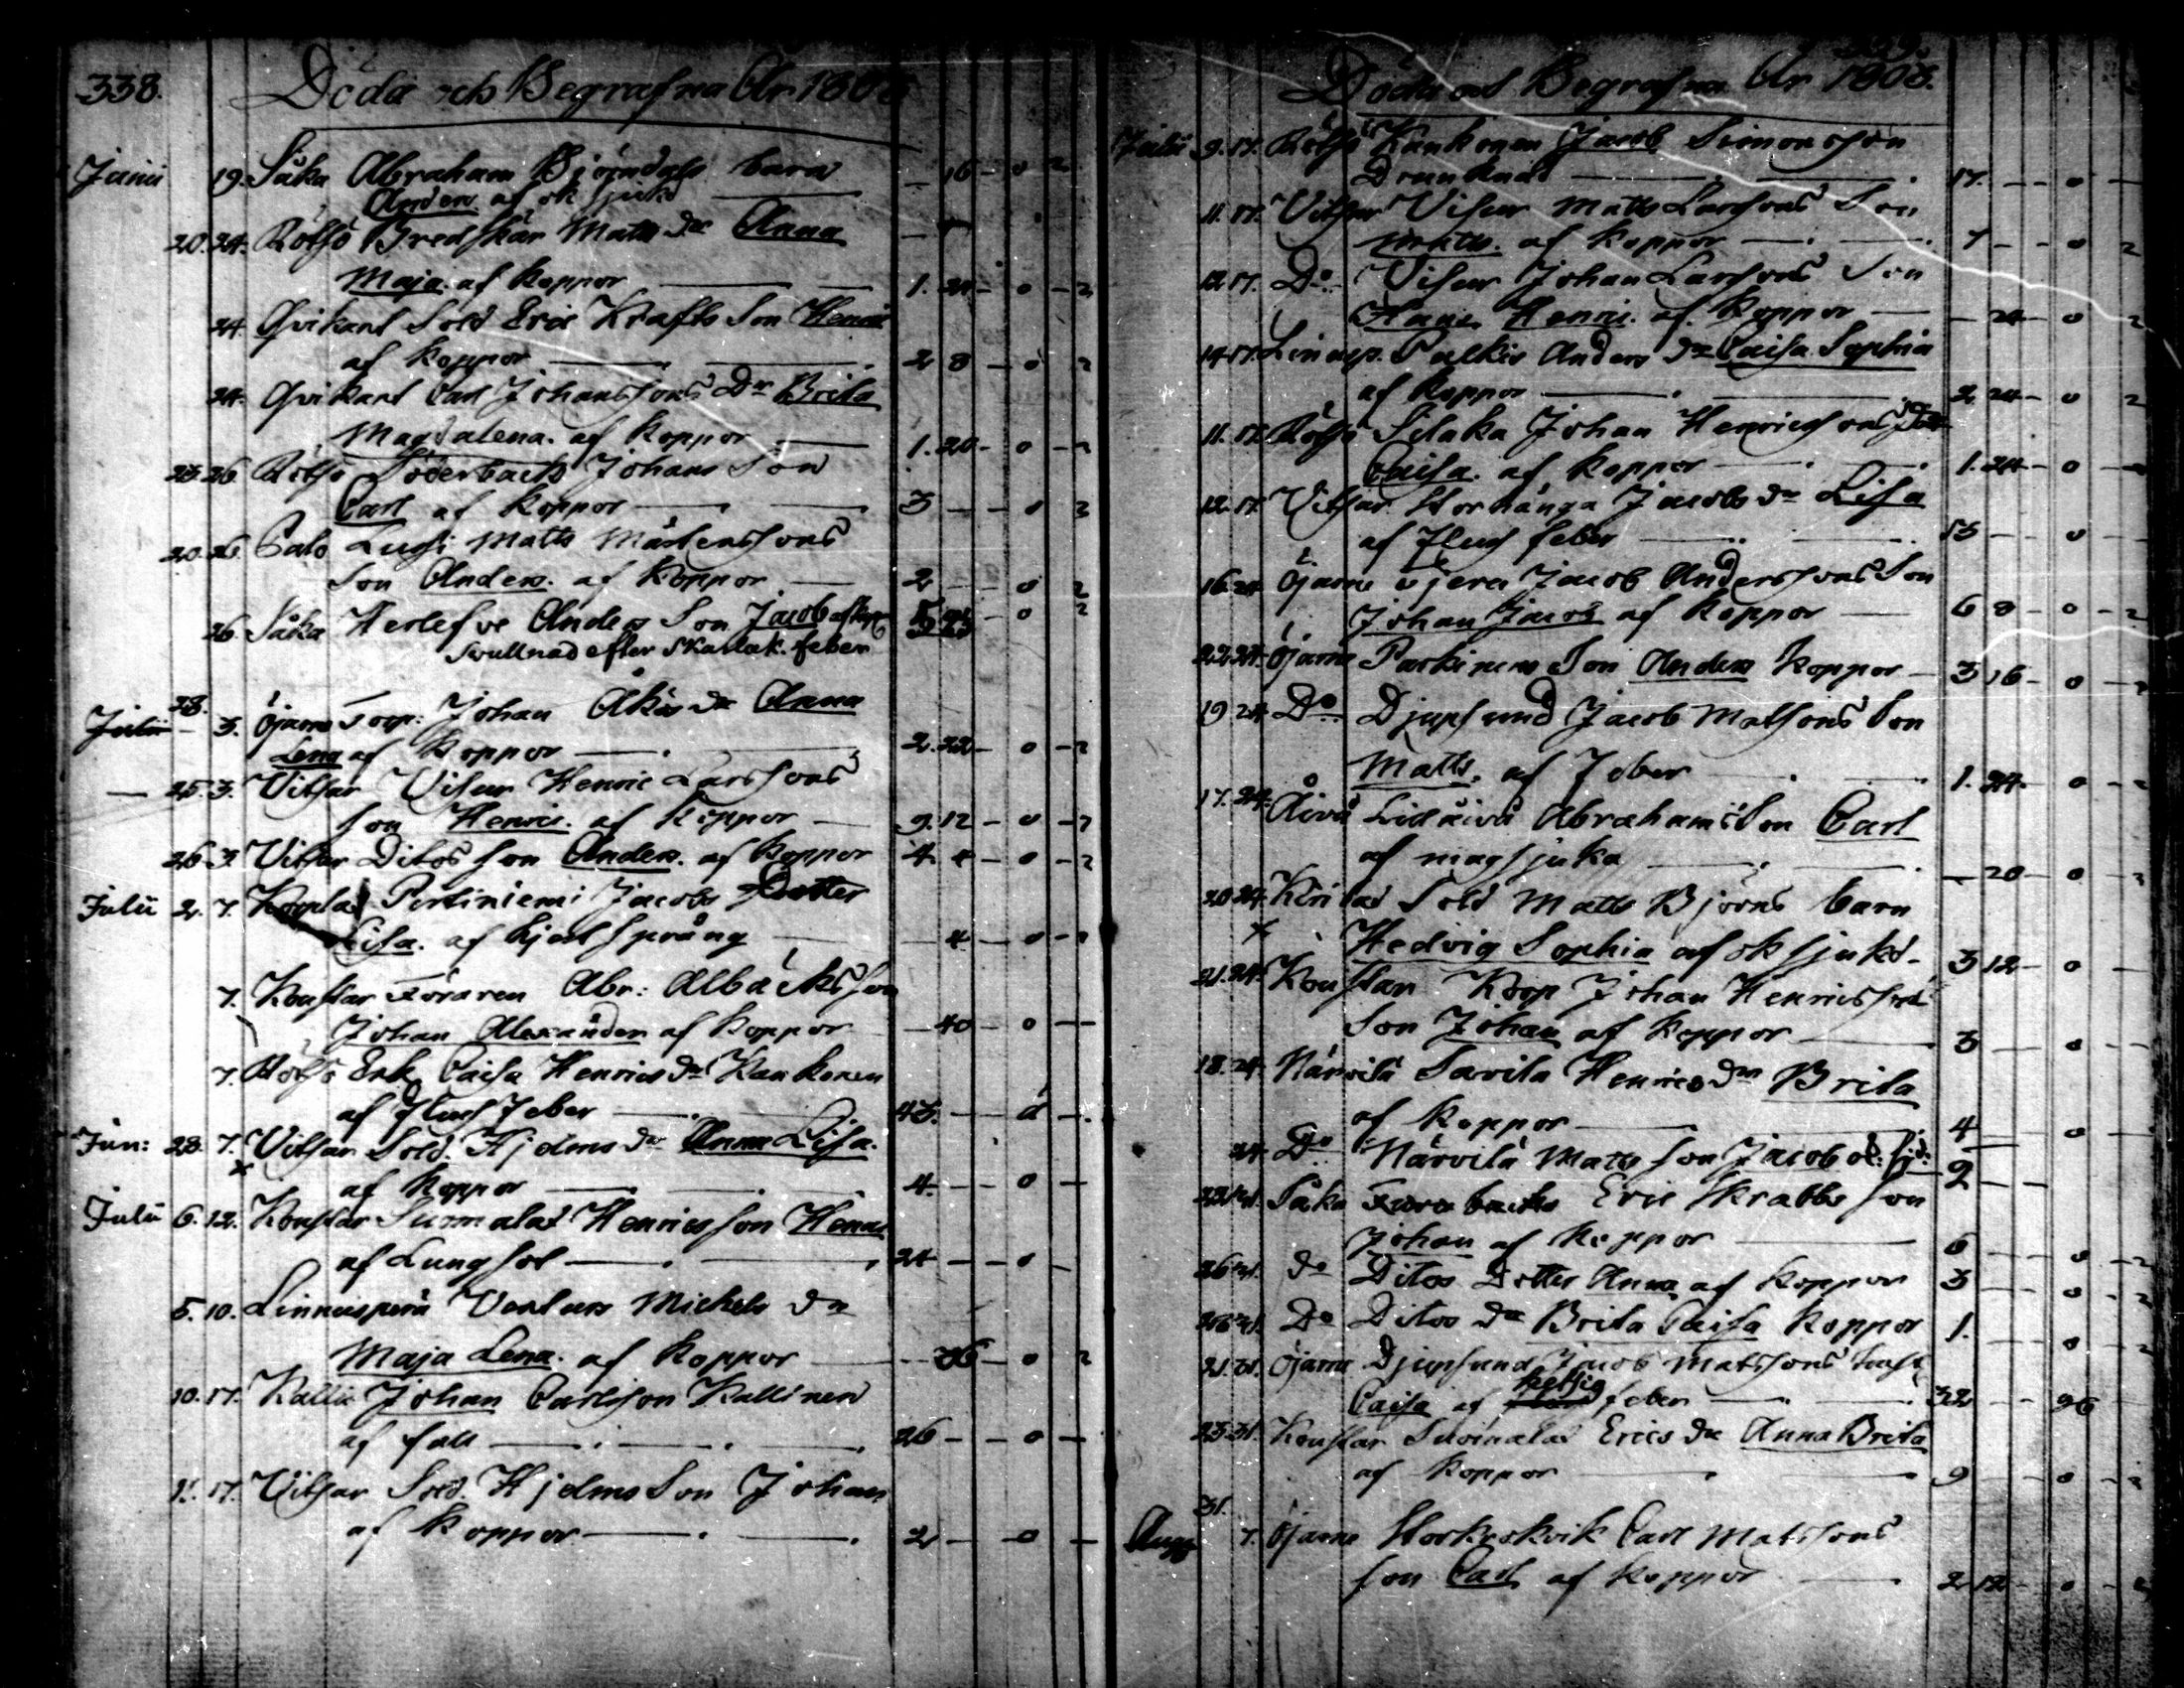 338.
Döda och Begrafna År 1808
Junii 19. Såka Abraham Björndahls barn
Anders af ok sjukd 16 - 0 2
20. 24. Rötsö Bredskär Matts Dr Anna
Maja af Koppor 1. 21 - 0 - 2
24. Qvikant Sold Eric Krafts Son Henric
af Koppor 2 8 - 0 2
24. Qvikant Carl Johanssons Dr Brita
Magdalena. af Koppor 1. 20 - 0 - 2
23. 26. Rötsö Söderbacka Johans Son
Carl af Koppor 3 - - 0 2
20. 26. Palo Lussi Matts Mårtenssons
Son Anders. af Koppor 2 - 0 2
26. Såka Herlefve Anders Son Jacob af kopp
Svullnad efter Skarlak. feber - 0 2
28.
Julii - 3. Öjarne Torp: Johan Åkes Dr Anna
Lena af Koppor 2. 22 - 0 - 2
25. 3. Vitsar Visur Henric Larssons
son Henric. af Koppor 9. 12 - 0 - 2
26. 3. Vitsar Ditos son Anders. af Koppor 4 4 - 0 - 2
Julii 2. 7. Koplax Pertiniemi Jacobs Dotter
Lisa. af hjertsprång 4 - 0 - 2
7. Konstar Föraren Abr: Albäcks son
Johan Alexander af Koppor 40 - 0 -
7. Rötsö Enk Caisa Henrics Dr Kankonen
af Fluss Feber 43. - 0 -
Jun: 28. 7. Vitsar Sold. Hjelms Dr Anna Lisa.
x af Koppor 4. - - 0 -
Julii 6. 12. Konstar Suomalas Henrics son Henric
af Lungsot 24 - - 0 -
5. 10. Linnäsperä Verlans Michels Dr
Maja Lena. af Koppor 36 - 0 2
10. 17. Kallis Johan Carlsson Kallinen
af fall 26 - - 0 -
11. 17. Vitsar Sold. Hjelms Son Johan
af Koppor 2 - 0 -
339.
Döda och Begrafna År 1808.
Julii 9. 17. Rötsö Kankonen Jacob Simonsson
Drunknad 17. - - 0 -
11. 17. Vitsar Visur Matts Larssons Son
Matts. af Koppor 7 - - 0 2
12. 17. Do Visur Johan Larssons Son
Hans Henric. af Koppor 24 - 0 2
14. 17. Linnäsp. Palkis Anders Dr Caisa Sophia
af Koppor 2 24 - 0 2
11. 17. Rötsö Silaka Johan Henricssons Dotter
Caisa. af Koppor 1. 24 - 0 -
12. 17. Vitsar Storhånga Jacobs Dr Lisa
af Fluss feber 53 - - 0 -
16. 24. Öjarne Jacob Anderssons Son
Johan Jacob af Koppor 6 8 - 0 - 2
22. 24. Öjarne Parkinens Son Anders Koppor 3 16 - 0 - 2
19 24. Do Djupsund Jacob Matsons Son
Matts. af Feber 1. 24. - 0 - 2
17. 24. Åivå Lillåivå Abrahams Son Carl
af magsjuka 20 - 0 - 2
20. 24. Kirilax Sold Matts Björns barn
x Hedvig Sophia af ok sjukd - 3 12 - 0 -
21. 24. Konstar Koop Johan Henricssons
Son Johan af Koppor 3 - 0 -
18. 24. Närvilä Savila Henrics Dr Brita
af Koppor 4 - 0 -
24. Do Närvilä Matts son Jacob ok: sjd: 2 - -
22. 31. Såka Furubacka Eric Skrabbs son
Johan af Koppor 6 - 0 - 2
26. 31. Do Ditos Dotter Anna af Koppor 3 - 0 - 2
26. 31. Do Ditos Dr Brita Caisa Koppor 1. - 0 - 2
21. 31. Öjarne Djupsund Jacob Matssons hust
Caisa af hetsig feber 32 - - 96
23. 31. Konstar Suomalas Erics Dr Anna Brita
af Koppor 9 - - 0 - 2
31.
Aug 7. Öjarne Storkrokvik Carl Matssons
son Carl af Koppor 2 12 - 0 - 2